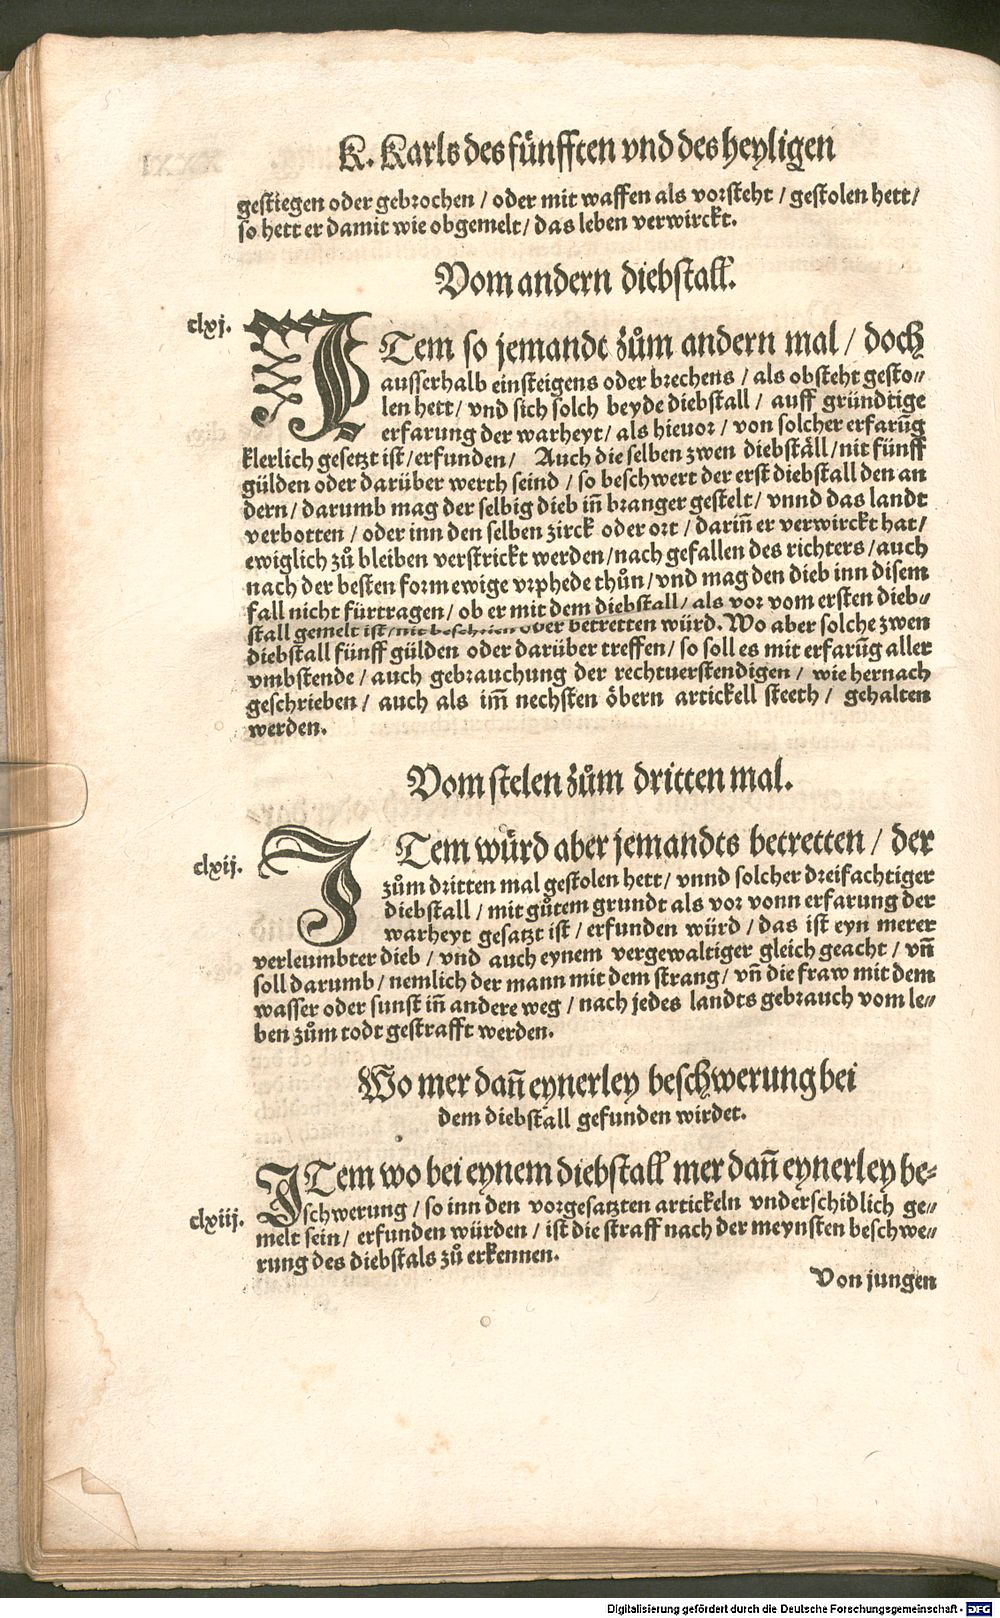 K. Karls des fünfften vnd des heyligen
gestiegen oder gebrochen / oder mit waffen als vorsteht / gestolen hett /
so hett er damit wie obgemelt / das leben verwirckt.
Vom andern diebstall.
clxj.
ITem so jemandt zům andern mal / doch
ausserhalb einsteigens oder brechens / als obsteht gesto⸗
len hett / vnd sich solch beyde diebstall / auff gründtige
erfarung der warheyt / als hieuor / von solcher erfarūg
klerlich gesetzt ist / erfunden / Auch die selben zwen diebställ / nit fünff
gülden oder darüber werth seind / so beschwert der erst diebstall den an
dern / darumb mag der selbig dieb iñ branger gestelt / vnnd das landt
verbotten / oder inn den selben zirck oder ort / dariñ er verwirckt hat /
ewiglich zů bleiben verstrickt werden / nach gefallen des richters / auch
nach der besten form ewige vrphede thůn / vnd mag den dieb inn disem
fall nicht fürtragen / ob er mit dem diebstall / als vor vom ersten dieb⸗
stall gemelt ist / nit beschrien oder betretten würd. Wo aber solche zwen
diebstall fünff gülden oder darüber treffen / so soll es mit erfarūg aller
vmbstende / auch gebrauchung der rechtuerstendigen / wie hernach
geschrieben / auch als im̄ nechsten öbern artickell steeth / gehalten
werden.
Vom stelen zům dritten mal.
clxij.
ITem würd aber jemandts betretten / der
zům dritten mal gestolen hett / vnnd solcher dreifachtiger
diebstall / mit gůtem grundt als vor vonn erfarung der
warheyt gesatzt ist / erfunden würd / das ist eyn merer
verleumbter dieb / vnd auch eynem vergewaltiger gleich geacht / vñ
soll darumb / nemlich der mann mit dem strang / vñ die fraw mit dem
wasser oder sunst iñ andere weg / nach jedes landts gebrauch vom le⸗
ben zům todt gestrafft werden.
Wo mer dañ eynerley beschwerung bei
dem diebstall gefunden wirdet.
ITem wo bei eynem diebstall mer dañ eynerley be⸗
clxiij.
schwerung / so inn den vorgesatzten artickeln vnderschidlich ge⸗
melt sein / erfunden würden / ist die straff nach der meynsten beschwe⸗
rung des diebstals zů erkennen.
Von jungen
Digitalisierung gefördert durch die Deutsche Forschungsgemeinschaft - DFG